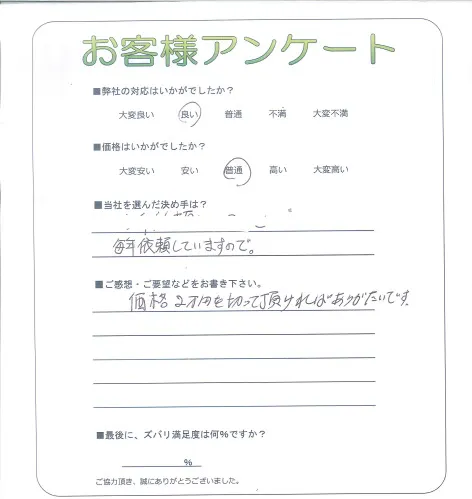 お客様アンケート
■弊社の対応はいかがでしたか？
大変良い 良い 普通 不満 大変不満
■価格はいかがでしたか？
大変安い 安い 普通 高い 大変高い
■当社を選んだ決め手は？
毎年依頼していますので。
■ご感想・ご要望などをお書き下さい。
価格2万円を切って頂ければありがたいです
■最後に、ズバリ満足度は何％ですか？
％
ご協力頂き、誠にありがとうございました。